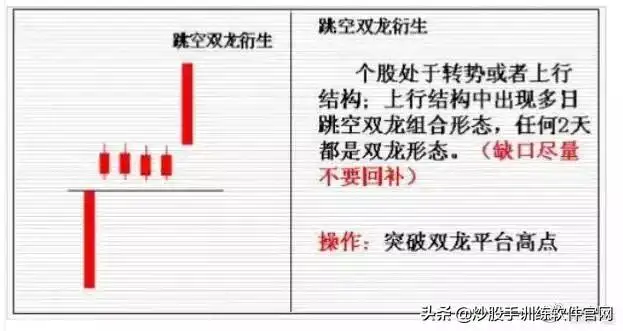 跳空双龙衍生
跳空双龙衍生
个股处于转势或者上行
结构；上行结构中出现多日
跳空双龙组合形态，任何2天
都是双龙形态。（缺口尽量
不要回补）
操作：突破双龙平台高点
头条@炒股手训练软件官网